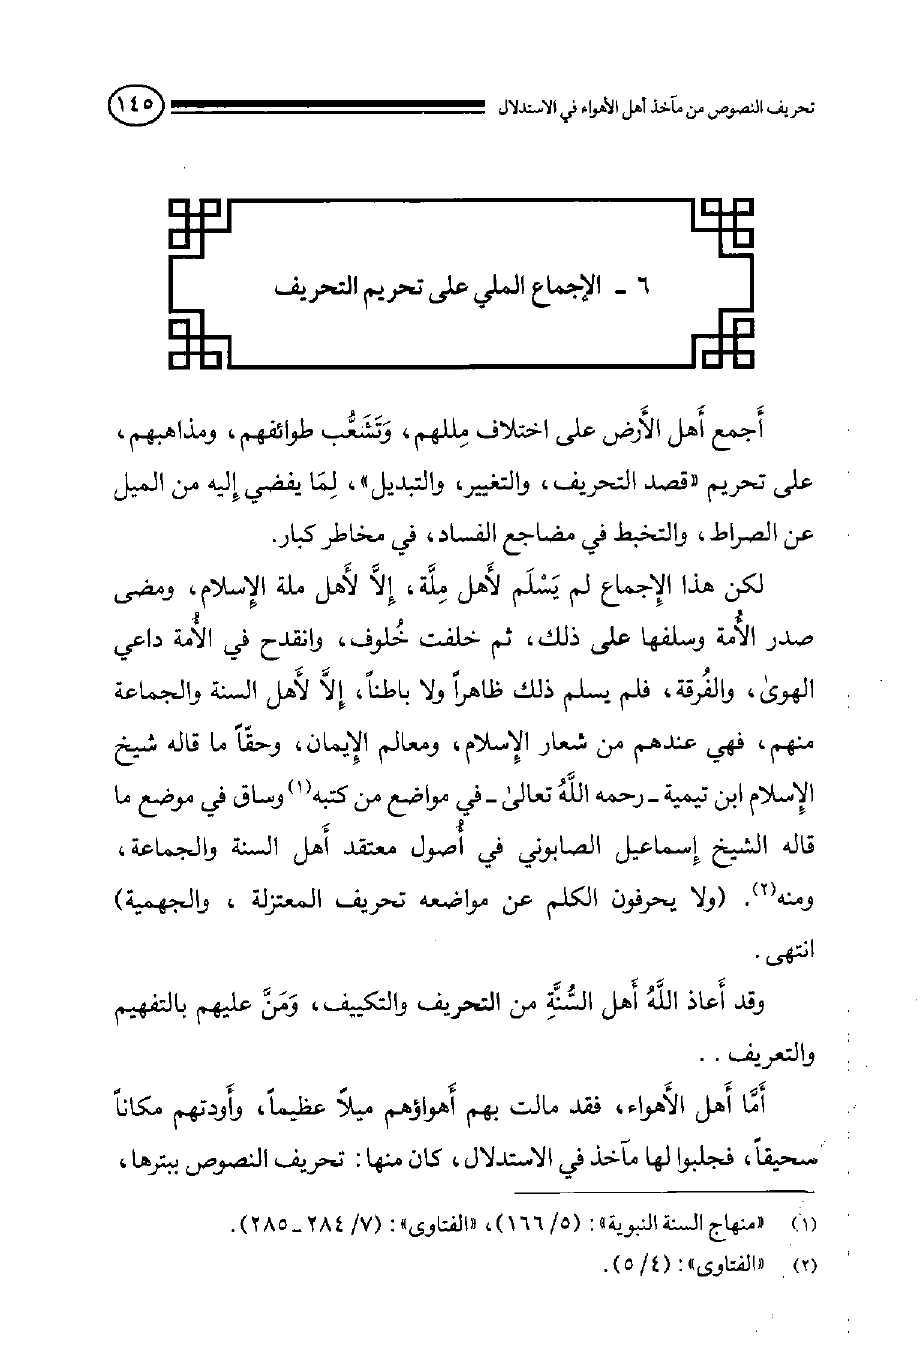 تحريف النصوص من مآخذ أهل الأهواء في الاستدلال ١٤٥
٦ ـ الإجماع الملي على تحريم التحريف
أَجمع أَهل الأَرض على اختلاف مِللهم، وَتَشَعُّب طوائفهم، ومذاهبهم،
على تحريم «قصد التحريف، والتغيير، والتبديل»، لِمَا يفضي إليه من الميل
عن الصراط، والتخبط في مضاجع الفساد، في مخاطر كبار.
لكن هذا الإجماع لم يَسْلَم لأَهل مِلَّة، إلاَّ لأَهل ملة الإسلام، ومضى
صدر الأُمة وسلفها على ذلك، ثم خلفت خُلوف، وانقدح في الأُمة داعي
الهوىٰ، والفُرقة، فلم يسلم ذلك ظاهراً ولا باطناً، إلاَّ لأَهل السنة والجماعة
منهم، فهي عندهم من شعار الإسلام، ومعالم الإيمان، وحقّاً ما قاله شيخ
الإسلام ابن تيمية ـ رحمه اللَّهُ تعالىٰ ـ في مواضع من كتبه(١) وساق في موضع ما
قاله الشيخ إسماعيل الصابوني في أُصول معتقد أَهل السنة والجماعة،
ومنه(٢). (ولا يحرفون الكلم عن مواضعه تحريف المعتزلة ، والجهمية)
انتهى.
وقد أَعاذ اللَّهُ أَهل السُّنَّةِ من التحريف والتكييف، وَمَنَّ عليهم بالتفهيم
والتعريف . .
أَمَّا أَهل الأَهواء، فقد مالت بهم أَهواؤهم ميلاً عظيماً، وأَودتهم مكاناً
سحيقاً، فجلبوا لها مآخذ في الاستدلال، كان منها: تحريف النصوص ببترها،
(١) «منهاج السنة النبوية»: (٥/ ١٦٦)، «الفتاوى»: (٧/ ٢٨٤ ـ ٢٨٥).
(٢) «الفتاوى»: (٤/ ٥).